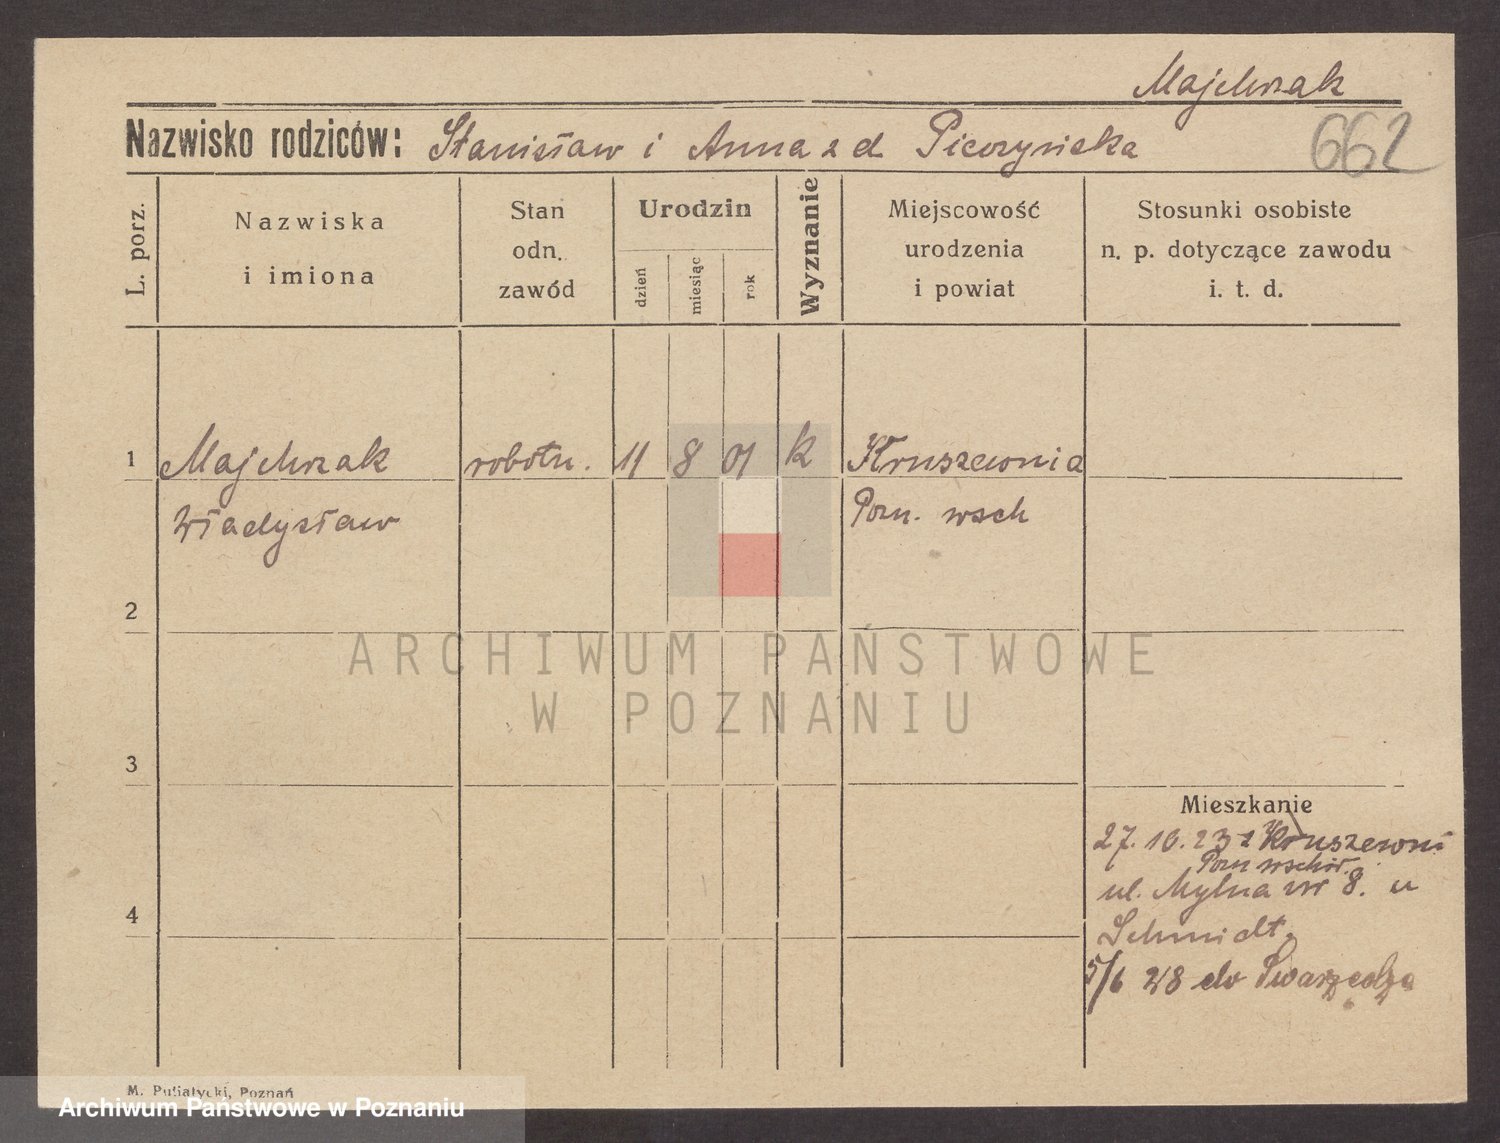 Majchrzak
Nazwisko rodziców: Stanisław i Anna z d. Pieczyńska
662
L. porz.
Nazwiska
i imiona
Stan
odn.
zawód
Urodzin
dzień
miesiąc
rok
Wyznanie
Miejscowość
urodzenia
i powiat
Stosunki osobiste
n. p. dotyczące zawodu
i. t. d.
1 Majchrzak robotn. 11 8 01 k Kruszewnia
Władysław Pozn. wsch
2
3
4
Mieszkanie
27.10.23 z Kruszewni
Pozn wschód.
ul. Mylna nr 8. u
Schmidt.
5/6 28 do Swarzędza
M. Pufiatycki, Poznań
ARCHIWUM PAŃSTWOWE
W POZNANIU
Archiwum Państwowe w Poznaniu